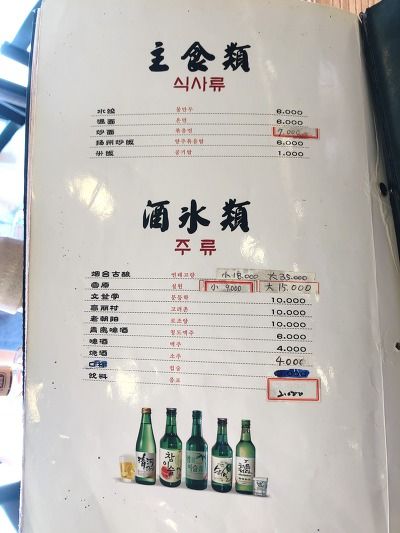 主食類
식사류
水餃 물만두 6.000
温面 온면 6.000
炒面 볶음면 7.000
扬州炒饭 양주볶음밥 6.000
米饭 공기밥 1.000
酒水類
주류
烟台古酿 연태고량 小 18.000 大 35.000
雪原 설원 小 9.000 大 15.000
文登学 문등학 10.000
高丽村 고려촌 10.000
老朝阳 로조양 10.000
青岛啤酒 청도맥주 6.000
啤酒 맥주 4.000
烧酒 소주 4.000
컵술
饮料 음료 2.000
참이슬